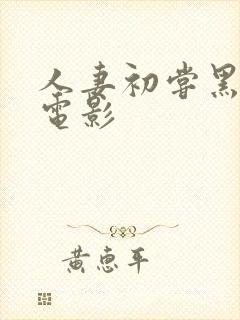 人妻初尝黑
电影
黄惠平